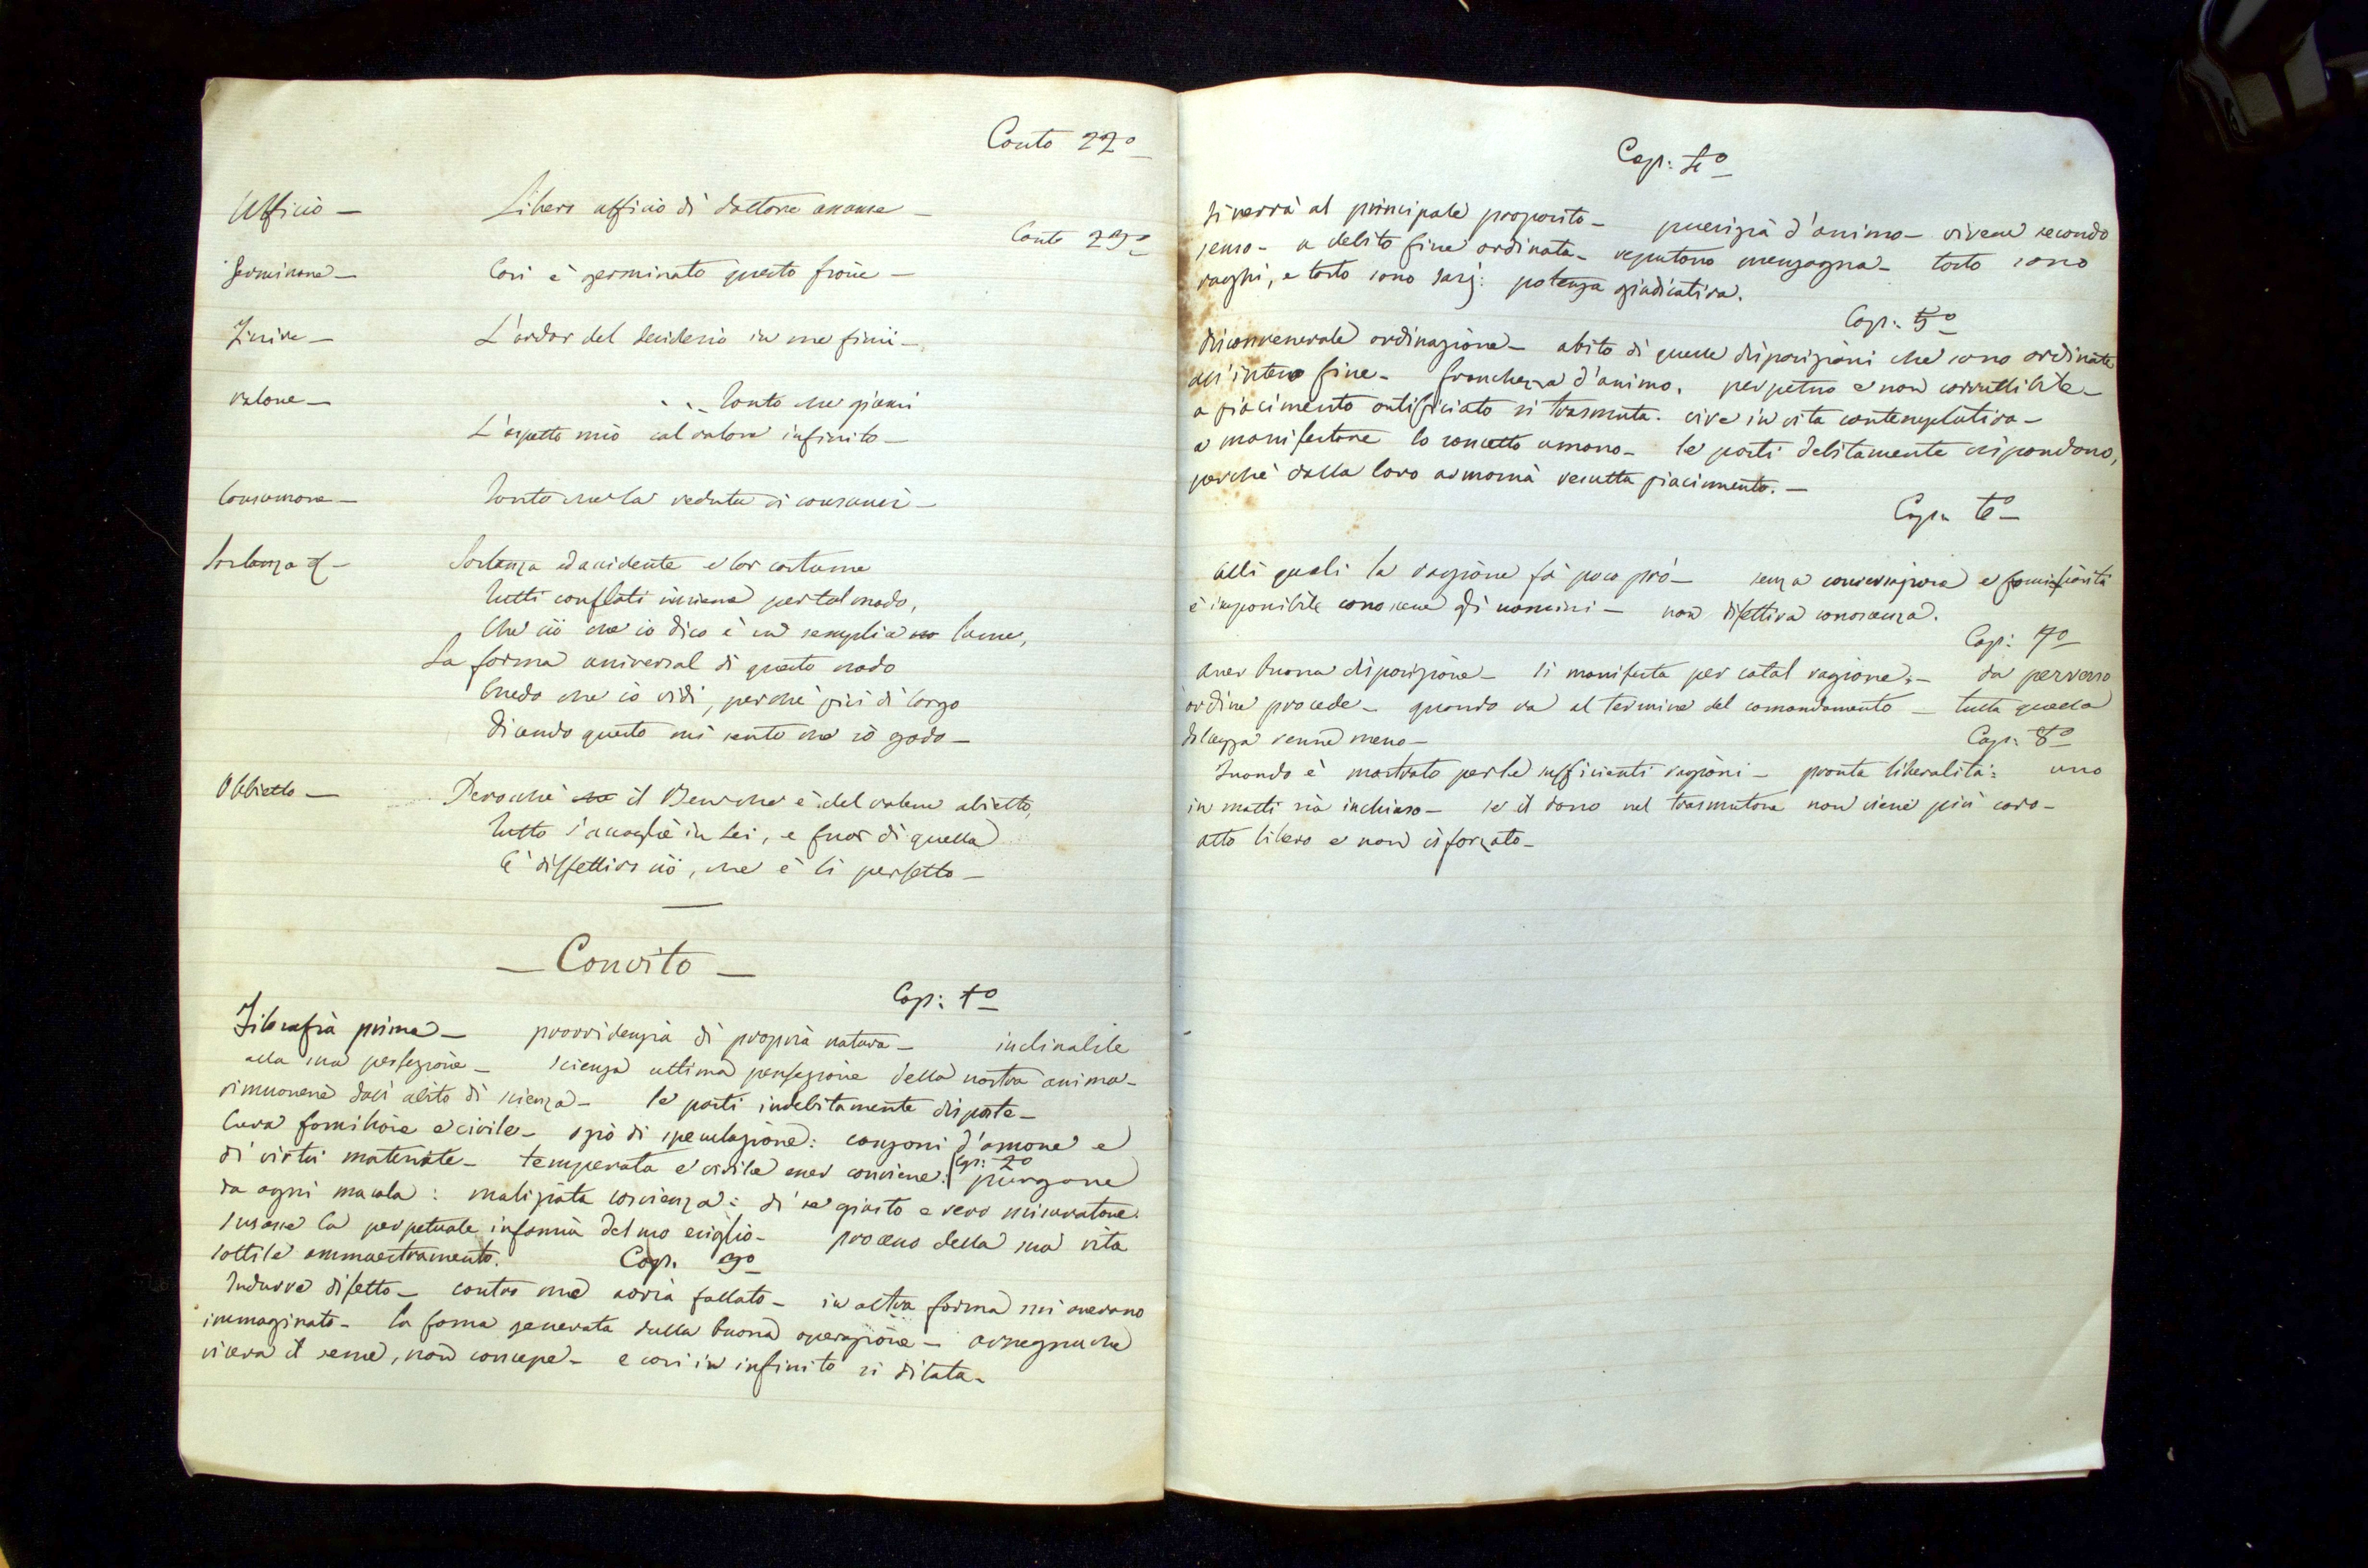 Canto 22º
Ufficio — Libero officio di dottore assunse —
Canto 23º
Germinare — Così è germinato questo fiore —
Finire — L'ardor del desiderio in me finii —
valore — . . . tanto che giunsi
L'aspetto mio col valore infinito —
Consumare — Tanto che la veduta vi consunsi —
Sostanza & — Sostanza ed accidente e lor costume
Tutti conflati insieme per tal modo,
Che ciò che io dico è un semplice lume,
La forma universal di questo nodo
Credo che io vidi, perchè più di largo
Dicendo questo mi sento che iò godo —
Obbietto — Perocchè il Ben che è del volere obietto,
Tutto s'accoglie in Lei, e fuor di quella
È diffettivo ciò, che è lì perfetto —
— Convito —
Cap: 1º
Filosofia prima — provvidenzia di propria natura — inclinabile
alla sua perfezione — scienza ultima perfezione della nostra anima —
rimuovere dall' abito di scienza — le parti indebitamente disposte —
Cura familiare e civile — ozio di speculazione: canzoni d'amore e
di virtù materiate — temperata e virile esser conviene. Cap: 2º purgare
da ogni macola: maliziata coscienza: di se giusto e vero misuratore.
scusare la perpetuale infamia del suo esiglio — processo della sua vita
sottile ammaestramento. Cap. 3º
Indurre difetto — contro me avria fallato — in altra forma mi averano
immaginato — la fama generata dalla buona operazione — avvegnachè
riceva il seme, non concepe — e così in infinito si dilata —
Cap: 4º
Si verrà al principale proposito — puerizia d'animo — vivere secondo
senso — a debito fine ordinata — reputano menzogna — tosto sono
vaghi, e tosto sono sazj: potenza giudicativa.
Cap: 5º
disconvenevole ordinazione — abito di quelle disposizioni che sono ordinate
all' inteso fine — franchezza d'animo. perpetuo e non corruttibile —
a piacimento artificiato si trasmuta. vive in vita contemplativa —
a manifestare lo concetto umano — le parti debitamente rispondono,
perchè dalla loro armonia resulta piacimento. —
Cap: 6º —
alli quali la ragione fà poco prò — senza conversazione e familiarità
è impossibile conoscere gli uomini — non difettiva conoscenza.
Cap: 7º
aver buona disposizione — si manifesta per cotal ragione. — da perverso
ordine procede — quando va al termine del comandamento — tutta quella
dolcezza venne meno — Cap: 8º
Quando è mostrato per le sufficienti ragioni — pronta liberalità: uno
in molti sia inchiuso — se il dono nel trasmutare non viene più caro —
atto libero e non isforzato —